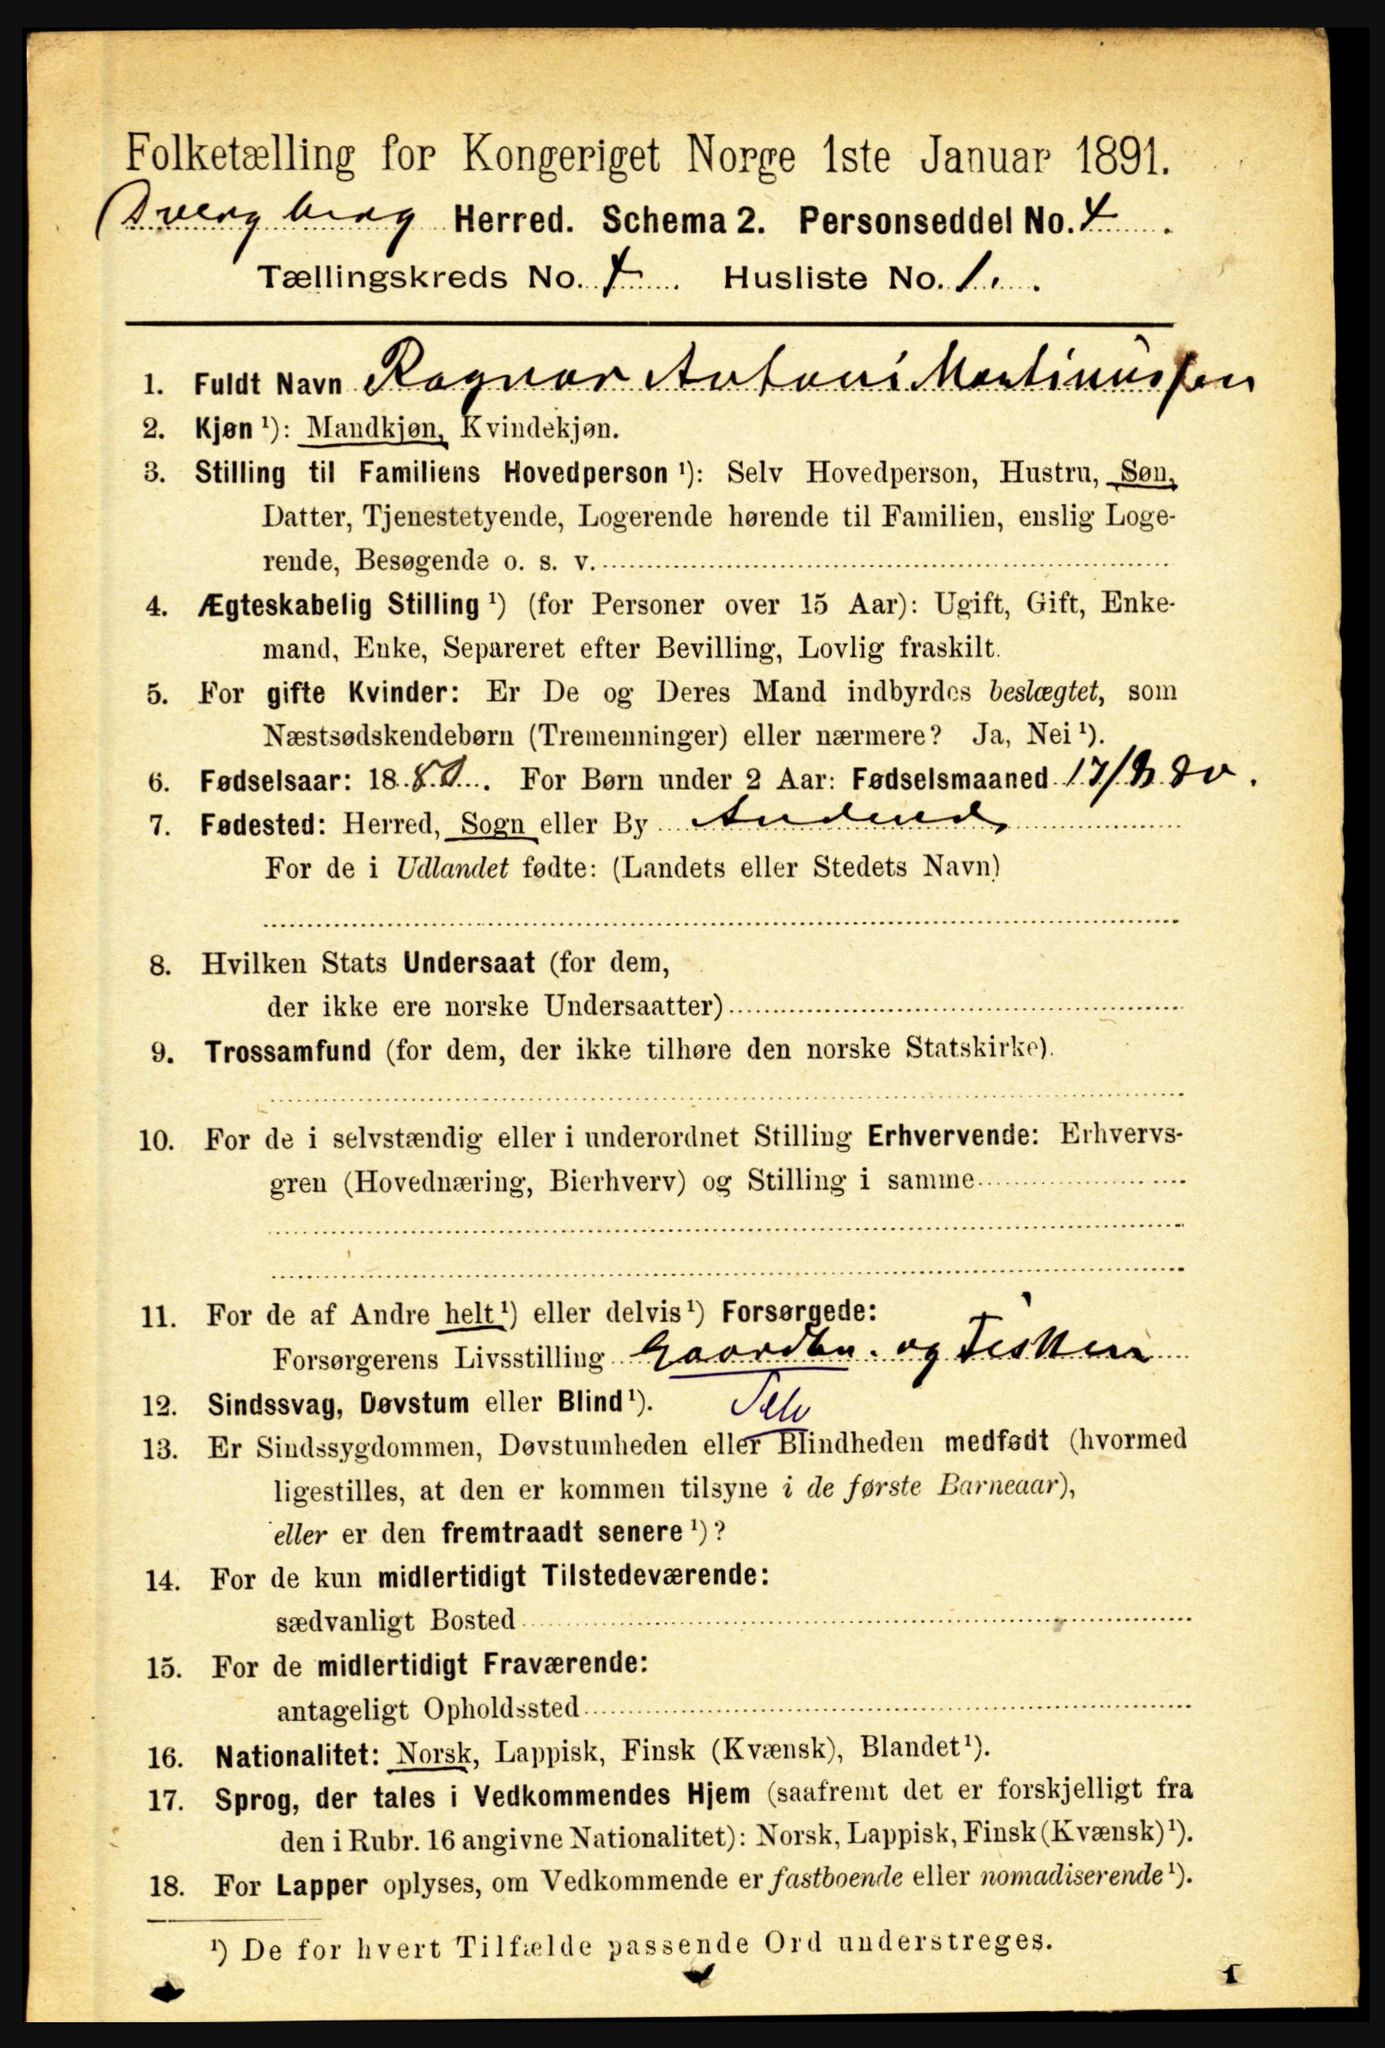 Folketælling for Kongeriget Norge 1ste Januar 1891.
Dverg berg Herred. Schema 2. Personseddel No. 4.
Tællingskreds No. 4. Husliste No. 1.
1. Fuldt Navn Ragnar Antoni Martinussen
2. Kjøn ¹): Mandkjøn, Kvindekjøn.
3. Stilling til Familiens Hovedperson ¹): Selv Hovedperson, Hustru, Søn,
Datter, Tjenestetyende, Logerende hørende til Familien, enslig Loge-
rende, Besøgende o. s. v.
4. Ægteskabelig Stilling ¹) (for Personer over 15 Aar): Ugift, Gift, Enke-
mand, Enke, Separeret efter Bevilling, Lovlig fraskilt.
5. For gifte Kvinder: Er De og Deres Mand indbyrdes beslægtet, som
Næstsødskendebørn (Tremenninger) eller nærmere? Ja, Nei ¹).
6. Fødselsaar: 18 For Børn under 2 Aar: Fødselsmaaned
7. Fødested: Herred, Sogn eller By Andenes
For de i Udlandet fødte: (Landets eller Stedets Navn)
8. Hvilken Stats Undersaat (for dem,
der ikke ere norske Undersaatter)
9. Trossamfund (for dem, der ikke tilhøre den norske Statskirke).
10. For de i selvstændig eller i underordnet Stilling Erhvervende: Erhvervs-
gren (Hovednæring, Bierhverv) og Stilling i samme
11. For de af Andre helt ¹) eller delvis ¹) Forsørgede:
Forsørgerens Livsstilling Gaardbr. og Fisker
12. Sindssvag, Døvstum eller Blind ¹). Selv
13. Er Sindssygdommen, Døvstumheden eller Blindheden medfødt (hvormed
ligestilles, at den er kommen tilsyne i de første Barneaar),
eller er den fremtraadt senere ¹)?
14. For de kun midlertidigt Tilstedeværende:
sædvanligt Bosted
15. For de midlertidigt Fraværende:
antageligt Opholdssted
16. Nationalitet: Norsk, Lappisk, Finsk (Kvænsk), Blandet ¹).
17. Sprog, der tales i Vedkommendes Hjem (saafremt det er forskjelligt fra
den i Rubr. 16 angivne Nationalitet): Norsk, Lappisk, Finsk (Kvænsk) ¹).
18. For Lapper oplyses, om Vedkommende er fastboende eller nomadiserende ¹).
¹) De for hvert Tilfælde passende Ord understreges.